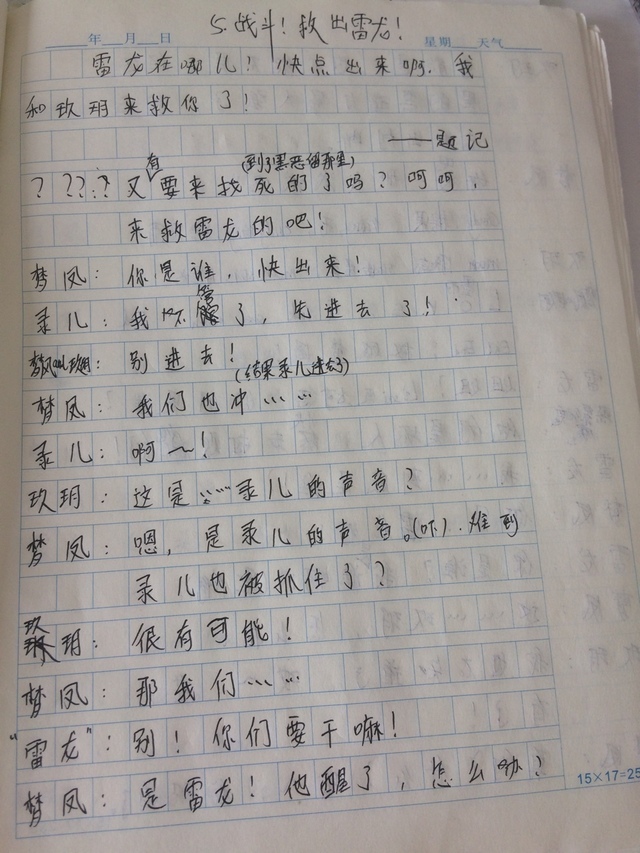 5.战斗！救出雷龙！
年 月 日 星期 天气
雷龙在哪儿！快点出来啊.我
和玖玥来救你了！
——题记
(到了黑恶留那里)
？？？.？又有要来找死的了吗？呵呵，
来救雷龙的吧！
梦凤：你是谁，快出来！
录儿：我不管了，先进去了！
梦凤和玖玥：别进去！
(结果录儿进去了)
梦凤：我们也冲……
录儿：啊～！
玖玥：这是……录儿的声音？
梦凤：嗯，是录儿的声音。(吓).难到
录儿也被抓住了？
玖玥：很有可能！
梦凤：那我们……
“雷龙”：别！你们要干嘛！
梦凤：是雷龙！他醒了，怎么办？
15×17=25